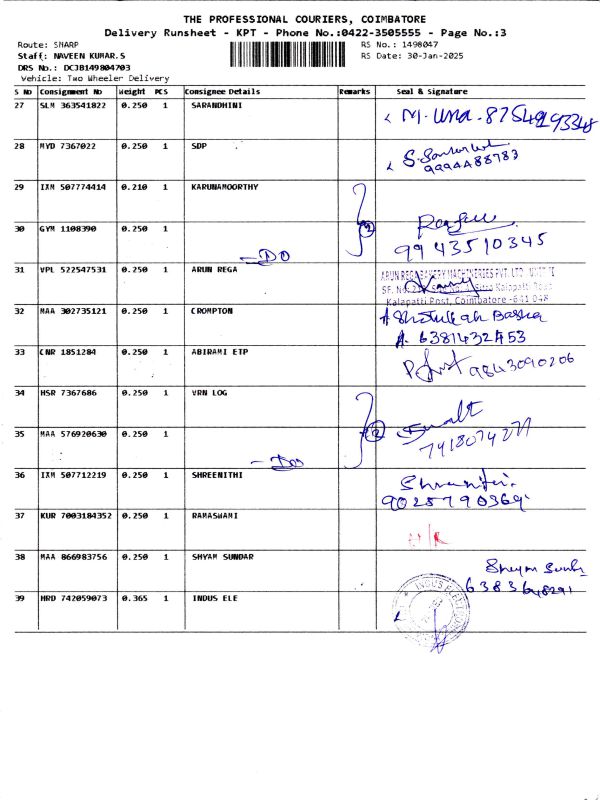 THE PROFESSIONAL COURIERS, COIMBATORE
Delivery Runsheet - KPT - Phone No.:0422-3505555 - Page No.:3
Route: SHARP RS No.: 1498047
Staff: NAVEEN KUMAR.S RS Date: 30-Jan-2025
DRS No.: DCJB149804703
Vehicle: Two Wheeler Delivery
S No Consignment No Weight PCS Consignee Details Remarks Seal & Signature
27 SLM 363541822 0.250 1 SARANDHINI
28 MYD 7367022 0.250 1 SDP
9994488783
29 IXM 507774414 0.210 1 KARUNAMOORTHY
2
30 GYM 1108390 0.250 1
9943510345
DO
31 VPL 522547531 0.250 1 ARUN REGA
ARUN REGA BAKERY MACHINERIES PVT. LTD
Kalapatti Post, Coimbatore - 641 048
32 MAA 302735121 0.250 1 CROMPTON
6381432453
33 CNR 1851284 0.250 1 ABIRAMI ETP
9843090206
34 HSR 7367686 0.250 1 VRN LOG
2
35 MAA 576920630 0.250 1
7418074277
Do
36 IXM 507712219 0.250 1 SHREENITHI
9025790369
37 KUR 7003184352 0.250 1 RAMASWAMI
38 MAA 866983756 0.250 1 SHYAM SUNDAR
Shyam
39 HRD 742059073 0.365 1 INDUS ELE
INDUS